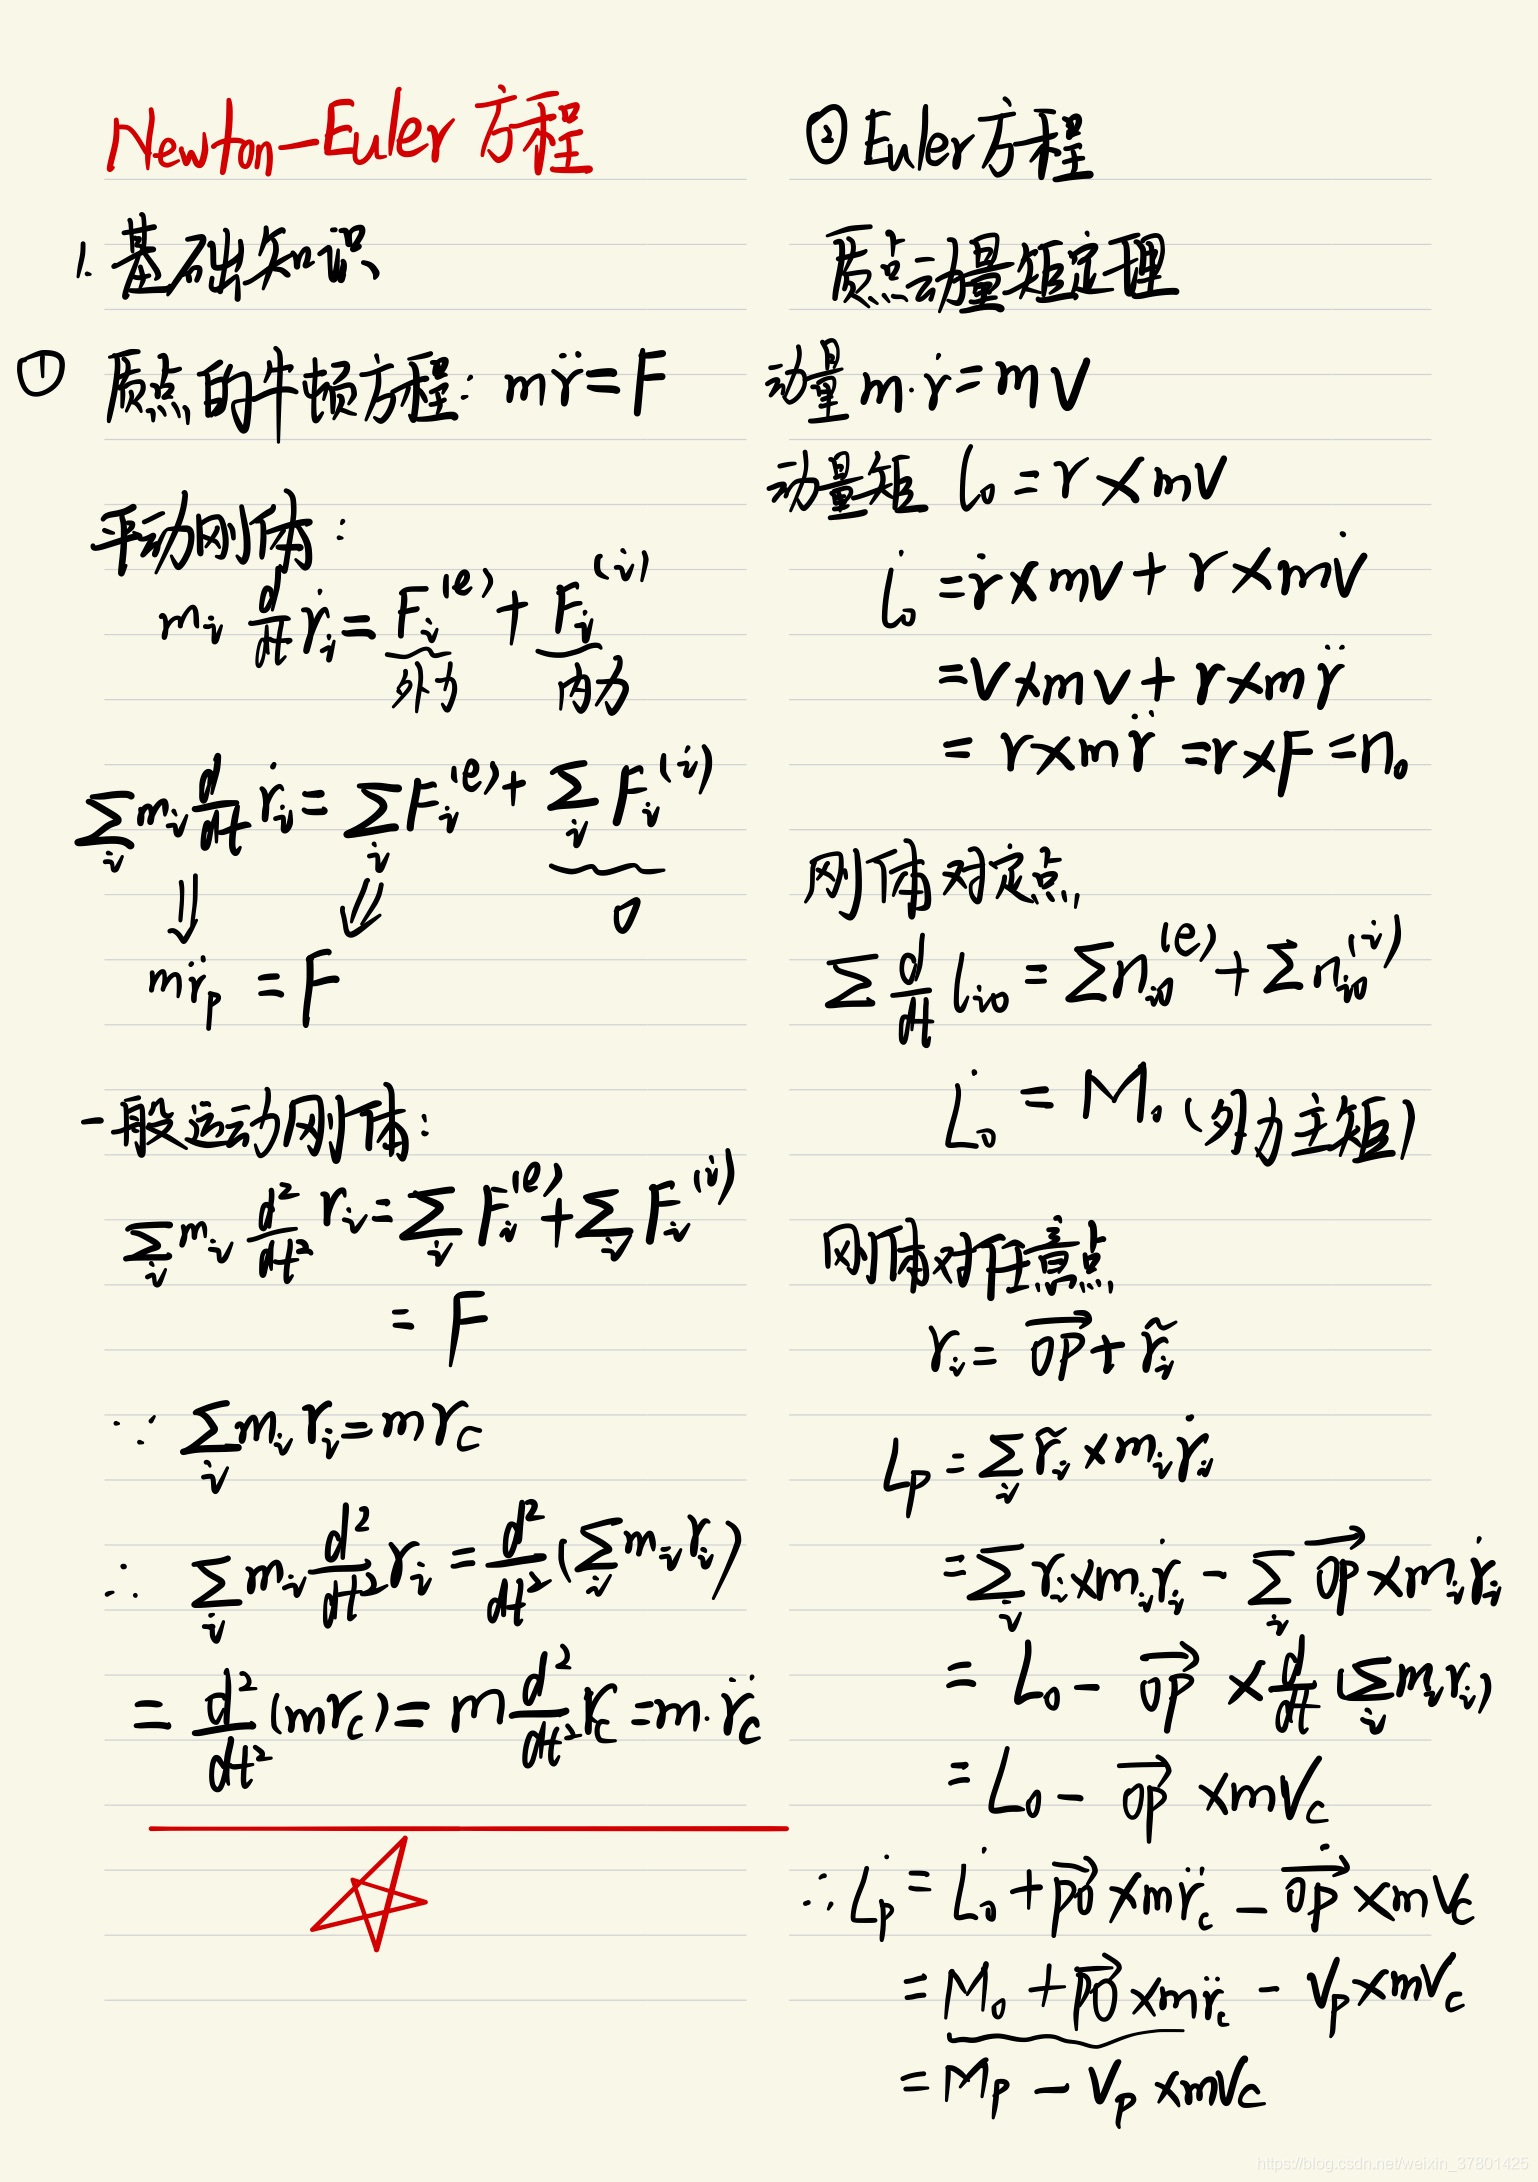 Newton-Euler 方程
1. 基础知识
① 质点的牛顿方程: mr̈=F
平动刚体:
mᵢ d/dt ṙᵢ = Fᵢ⁽ᵉ⁾ + Fᵢ⁽ⁱ⁾
外力 内力
∑ᵢ mᵢ d/dt ṙᵢ = ∑ᵢ Fᵢ⁽ᵉ⁾ + ∑ᵢ Fᵢ⁽ⁱ⁾
⇓ ⇙ 0
mr̈_p = F
一般运动刚体:
∑ᵢ mᵢ d²/dt² rᵢ = ∑ᵢ Fᵢ⁽ᵉ⁾ + ∑ᵢ Fᵢ⁽ⁱ⁾
= F
∵ ∑ᵢ mᵢ rᵢ = m r_c
∴ ∑ᵢ mᵢ d²/dt² rᵢ = d²/dt² (∑ᵢ mᵢ rᵢ)
= d²/dt² (m r_c) = m d²/dt² r_c = m·r̈_c
② Euler方程
质点动量矩定理
动量 m·ṙ = mv
动量矩 l₀ = r × mv
l̇₀ = ṙ × mv + r × mv̇
= v × mv + r × mr̈
= r × mr̈ = r × F = n₀
刚体对定点
∑ d/dt lᵢ₀ = ∑ nᵢ₀⁽ᵉ⁾ + ∑ nᵢ₀⁽ⁱ⁾
L̇₀ = M₀ (外力主矩)
刚体对任意点
rᵢ = OP→ + r̃ᵢ
L_p = ∑ᵢ r̃ᵢ × mᵢ ṙᵢ
= ∑ᵢ rᵢ × mᵢ ṙᵢ - ∑ᵢ OP→ × mᵢ ṙᵢ
= L₀ - OP→ × d/dt (∑ᵢ mᵢ rᵢ)
= L₀ - OP→ × mV_c
∴ L̇_p = L̇₀ + PO→ × mr̈_c - OṖ→ × mV_c
= M₀ + PO→ × mr̈_c - V_p × mV_c
= M_p - V_p × mV_c
https://blog.csdn.net/weixin_37801425